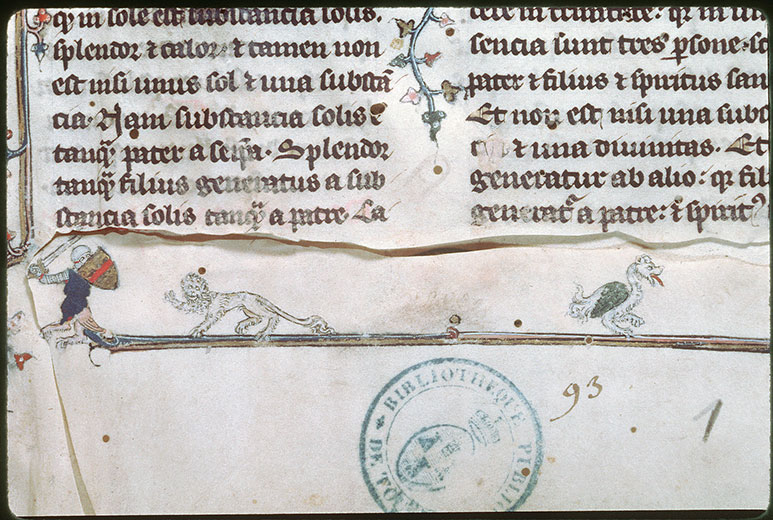 q̄ in sole est substancia solis.
splendor ⁊ calor ⁊ tamen non
est nisi unus sol ⁊ una substā
cia. Nam substancia solis ē
tanq̄ pater a seip̄a. Splendor
tanq̄ filius generatus a sub
stancia solis tanq̄ a patre. Ca
sencia sunt tres p̱sone. sc
pater ⁊ filius ⁊ spiritus san
Et non est nisi una subs
⁊ una divinitas. Et
generatur ab alio: q̄ fil
generat᷑ a patre: ⁊ spirit᷒
BIBLIOTHÈQUE PUBLI
DE
93
1